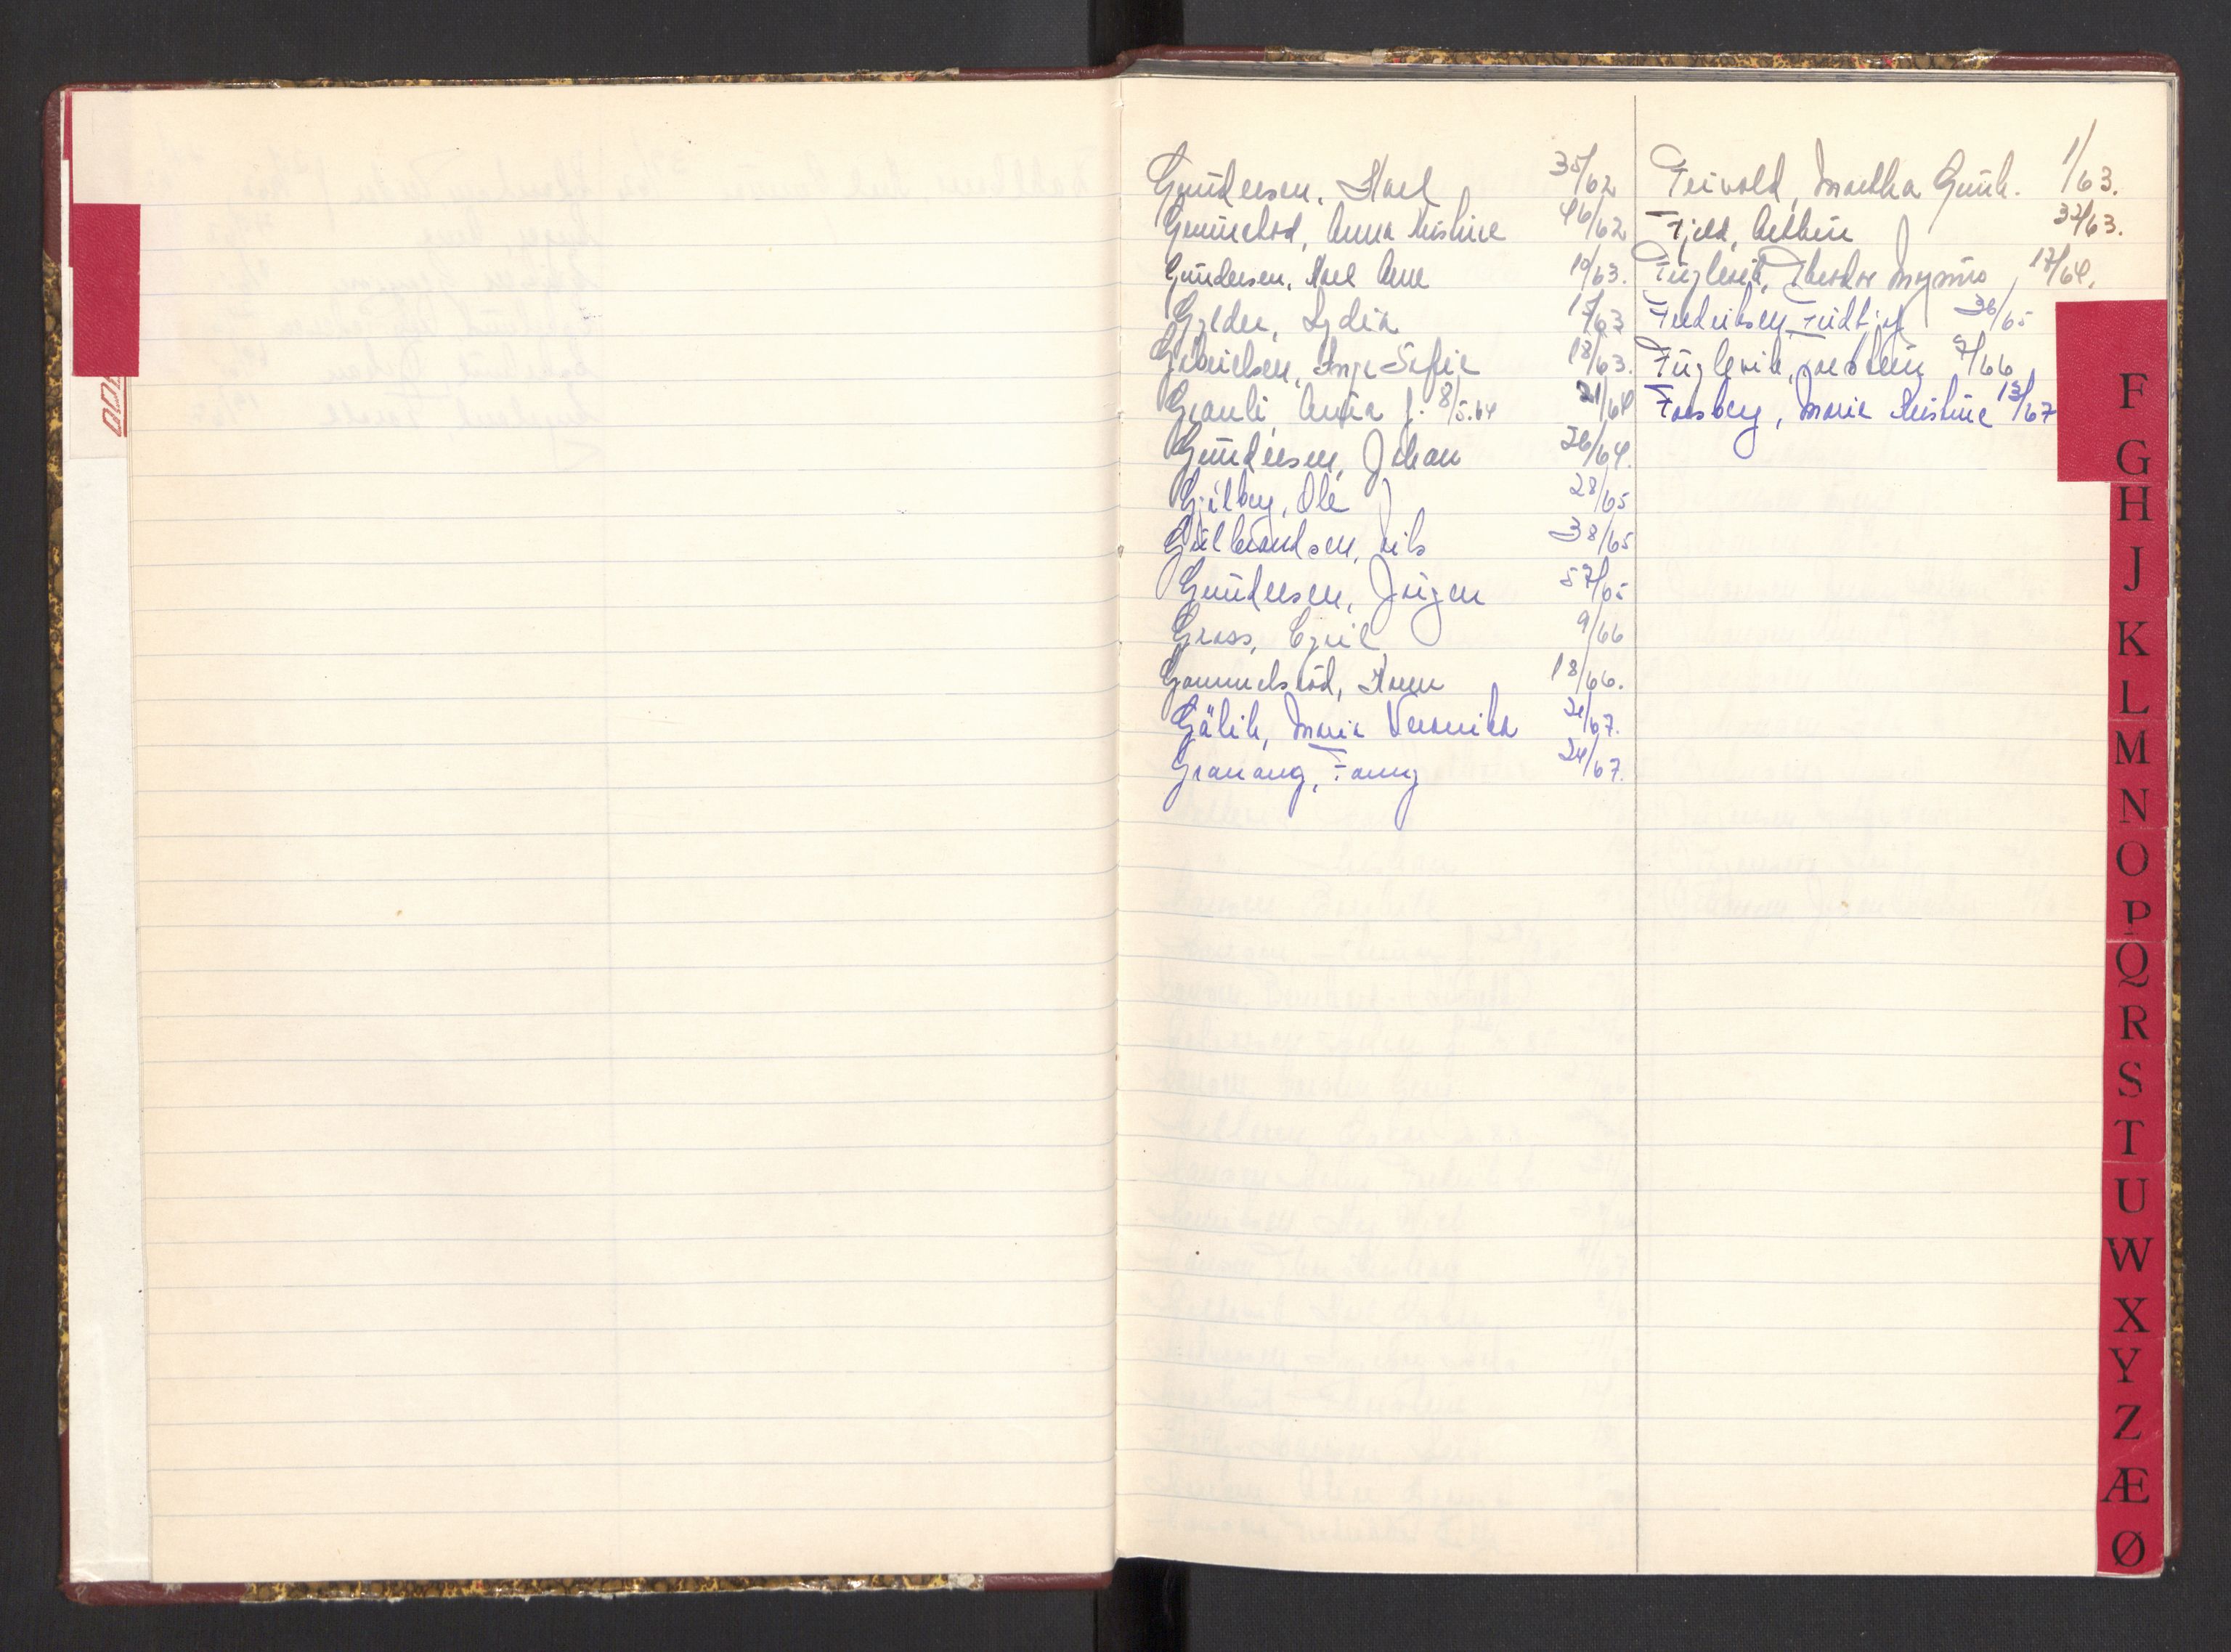 Gundersen, Karl 35/62
Grimelid, Anna Kristine 46/62
Gundersen, Karl Arne 10/63.
Gylder, Lydia 15/63
Gabrielsen, Inga Sofie 18/63.
Granli, Anna f. 8/5.64 21/64
Gundersen, Johan 26/64.
Gjelberg, Ole J 28/65
Gulbrandsen, Nils 38/65
Gundersen, Jørgen 57/65
Grass, Cyril 9/66
Gammelsrød, Karen 18/66.
Gálik, Maria Veronika 21/67.
Granang, Fanny 24/67.
Feivold, Martha Gunh. 1/63.
Fjeld, Arthur 32/63.
Fuglevik, Theodor Magnus, 17/64.
Fredriksen, Fridtjof 36/65
Fuglevik, 7/66
Forsberg, Marie Kristine 13/67
F
G
H
J
K
L
M
N
O
P
Q
R
S
T
U
W
X
Y
Z
Æ
Ø